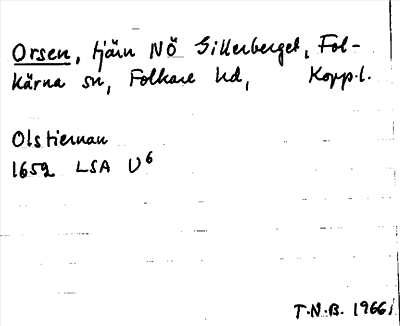 Orsen, tjärn NÖ Sillerberget, Fol-
kärna sn, Folkare hd, Kopp.l.
Olstiernan
1652 LSA U6
T.N.B. 1966